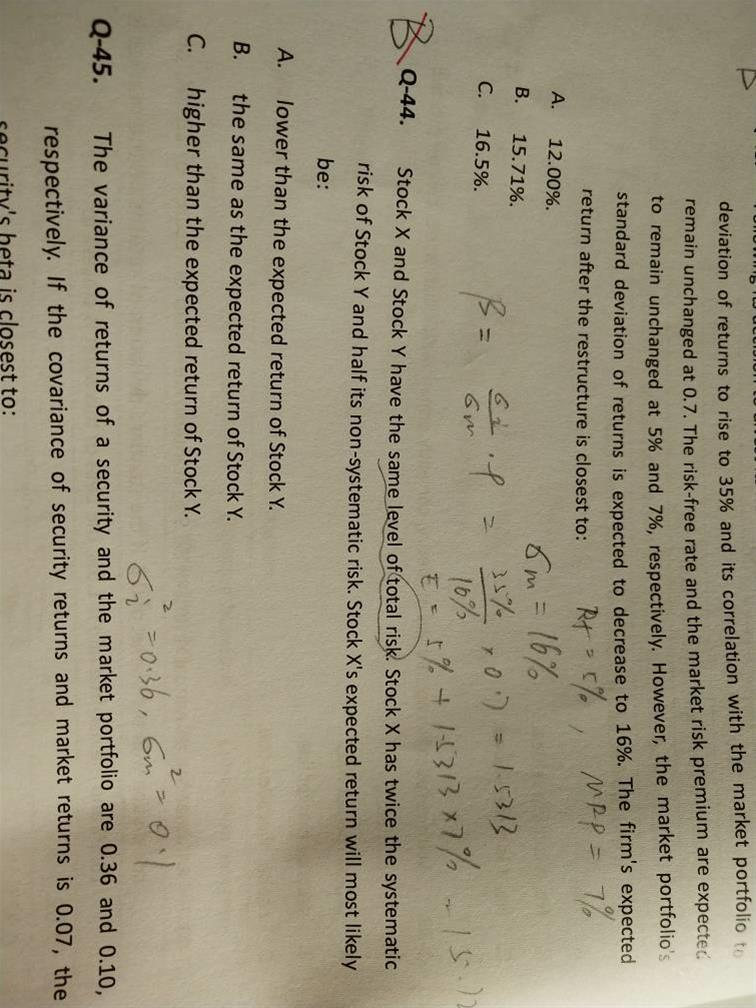 deviation of returns to rise to 35% and its correlation with the market portfolio to
remain unchanged at 0.7. The risk-free rate and the market risk premium are expected
to remain unchanged at 5% and 7%, respectively. However, the market portfolio's
standard deviation of returns is expected to decrease to 16%. The firm's expected
return after the restructure is closest to:
Rf = 5%, MRP = 7%
A. 12.00%.
σm = 16%
B. 15.71%.
C. 16.5%.
β = σi/σm · ρ = 35%/16% × 0.7 = 1.5313
E = 5% + 1.5313 × 7%
B Q-44. Stock X and Stock Y have the same level of total risk. Stock X has twice the systematic
risk of Stock Y and half its non-systematic risk. Stock X's expected return will most likely
be:
A. lower than the expected return of Stock Y.
B. the same as the expected return of Stock Y.
C. higher than the expected return of Stock Y.
σi² = 0.36, σm² = 0.1
Q-45. The variance of returns of a security and the market portfolio are 0.36 and 0.10,
respectively. If the covariance of security returns and market returns is 0.07, the
security's beta is closest to: